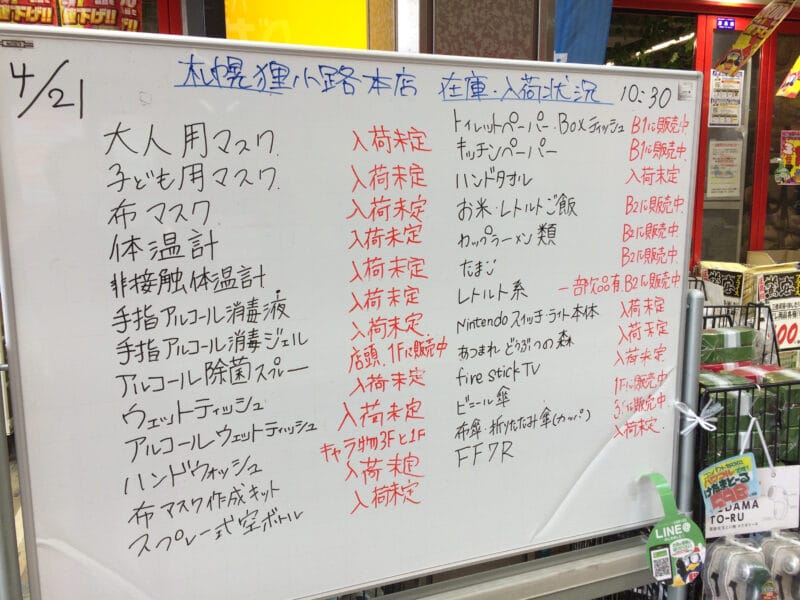 4/21 札幌狸小路本店 在庫・入荷状況 10:30
大人用マスク 入荷未定
子ども用マスク 入荷未定
布マスク 入荷未定
体温計 入荷未定
非接触体温計 入荷未定
手指アルコール消毒液 入荷未定
手指アルコール消毒ジェル 入荷未定
アルコール除菌スプレー 店頭、1Fに販売中
ウェットティッシュ 入荷未定
アルコールウェットティッシュ 入荷未定
ハンドウォッシュ キャラ物3Fと1F
布マスク作成キット 入荷未定
スプレー式空ボトル 入荷未定
トイレットペーパー・Boxティシュ B1に販売中
キッチンペーパー B1に販売中
ハンドタオル 入荷未定
お米・レトルトご飯 B2に販売中
カップラーメン類 B2に販売中
たまご B2に販売中
レトルト系 一部欠品有 B2に販売中
Nintendoスイッチ・ライト本体 入荷未定
あつまれどうぶつの森 入荷未定
fire stick TV 入荷未定
ビニール傘 1Fに販売中
布傘・折りたたみ傘(カッパ) 3Fに販売中
FF7R 入荷未定
LINE
598
TO-RU